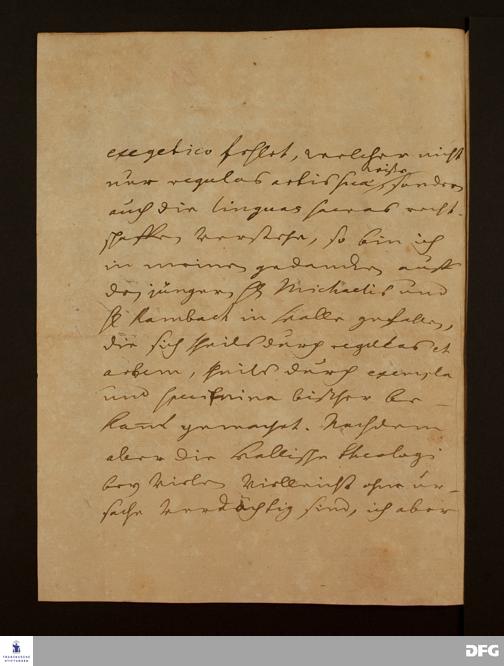 exegetico fehlet, welcher nicht
nur regulas artis suae weiß, sondern
auch die linguas sacras recht-
schaffen verstehe, so bin ich
in meinen gedancken auff
den jüngern H Michaelis und
H Rambach in Halle gefallen,
die sich theils durch regulas et
artem, theils durch exempla
und specimina bißher be-
kant gemacht. Nachdem
aber die Hallische theologi
bey vielen vielleicht ohne ur-
sache verdächtig sind, ich aber
FRANCKESCHE STIFTUNGEN
DFG